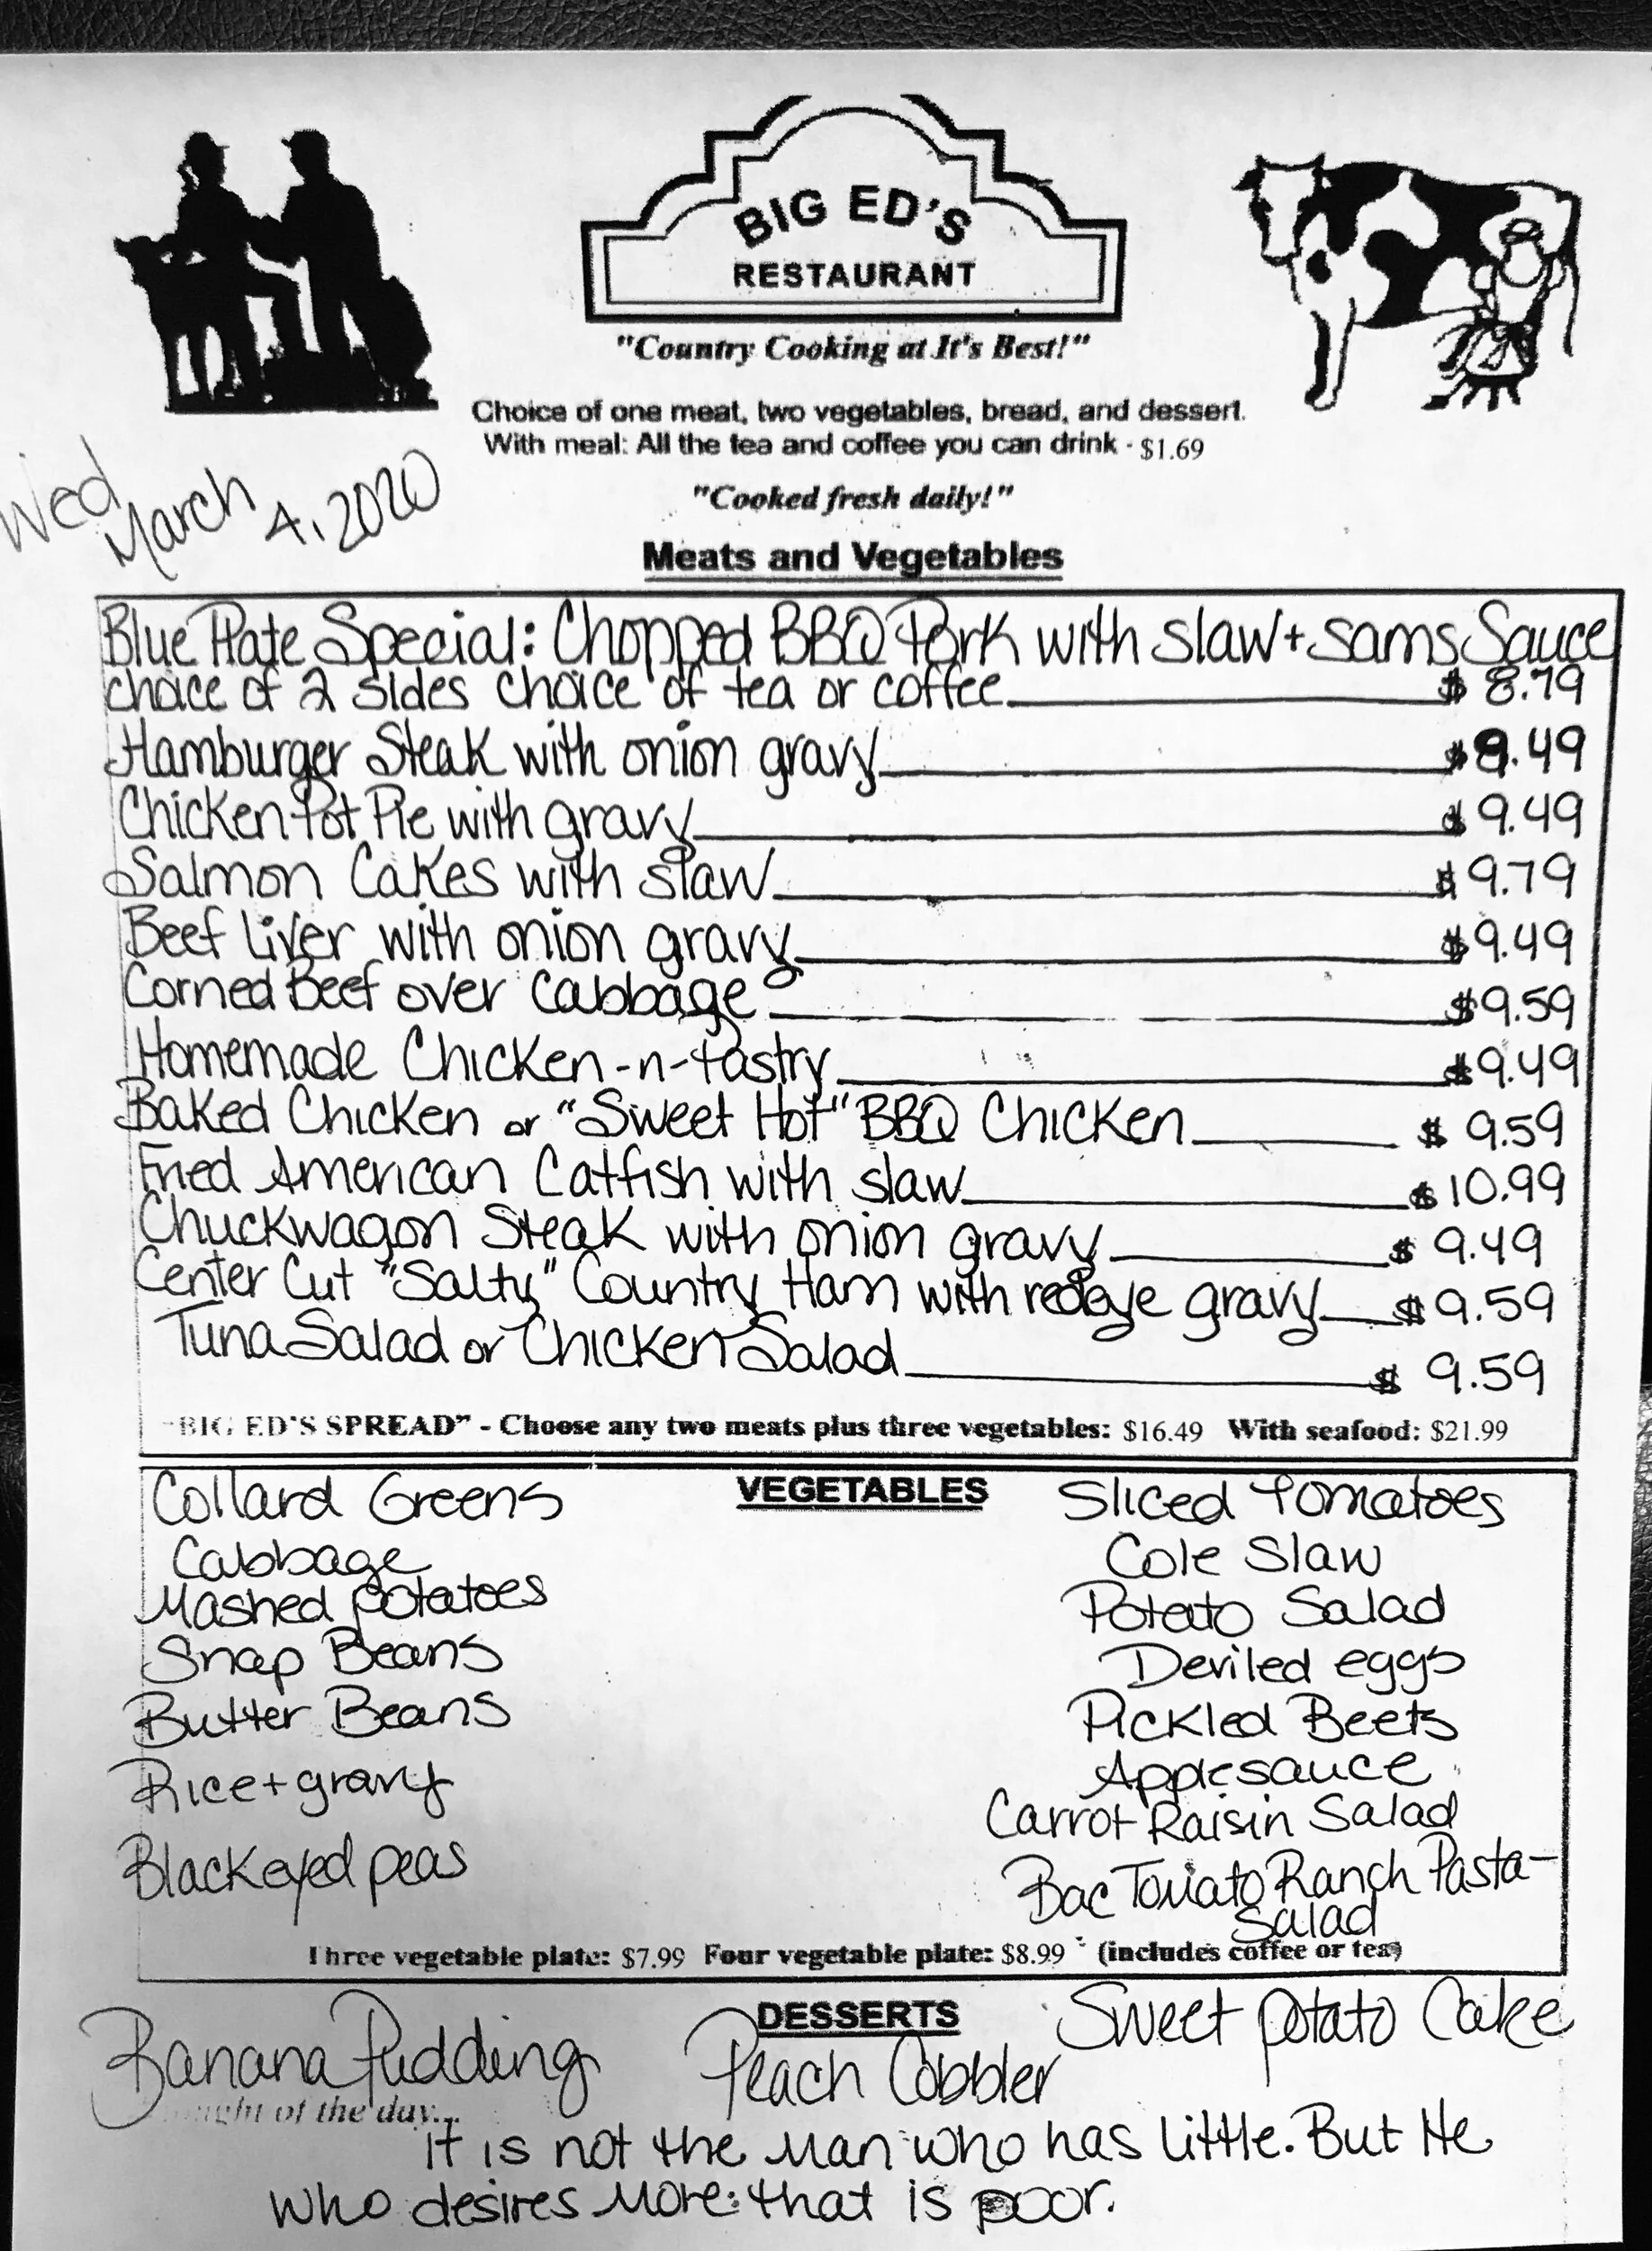 BIG ED'S
RESTAURANT
"Country Cooking at It's Best!"
Choice of one meat, two vegetables, bread, and dessert.
With meal: All the tea and coffee you can drink - $1.69
Wed
March 4, 2020
"Cooked fresh daily!"
Meats and Vegetables
Blue Plate Special: Chopped BBQ Pork with slaw + Sams Sauce
choice of 2 sides choice of tea or coffee $ 8.79
Hamburger Steak with onion gravy $9.49
Chicken Pot Pie with gravy $9.49
Salmon Cakes with slaw $9.79
Beef Liver with onion gravy $9.49
Corned Beef over Cabbage $9.59
Homemade Chicken-n-Pastry $9.49
Baked Chicken or "Sweet Hot" BBQ Chicken $ 9.59
Fried American Catfish with slaw $10.99
Chuckwagon Steak with onion gravy $ 9.49
Center Cut "Salty" Country Ham with redeye gravy $9.59
Tuna Salad or Chicken Salad $ 9.59
"BIG ED'S SPREAD" - Choose any two meats plus three vegetables: $16.49 With seafood: $21.99
VEGETABLES
Collard Greens
Cabbage
Mashed potatoes
Snap Beans
Butter Beans
Rice + gravy
Blackeyed peas
Sliced Tomatoes
Cole Slaw
Potato Salad
Deviled eggs
Pickled Beets
Applesauce
Carrot Raisin Salad
Bac Tomato Ranch Pasta-
Salad
Three vegetable plate: $7.99 Four vegetable plate: $8.99 (includes coffee or tea)
DESSERTS
Banana Pudding Peach Cobbler Sweet potato Cake
of the day...
it is not the man who has little. But He
who desires more: that is poor.